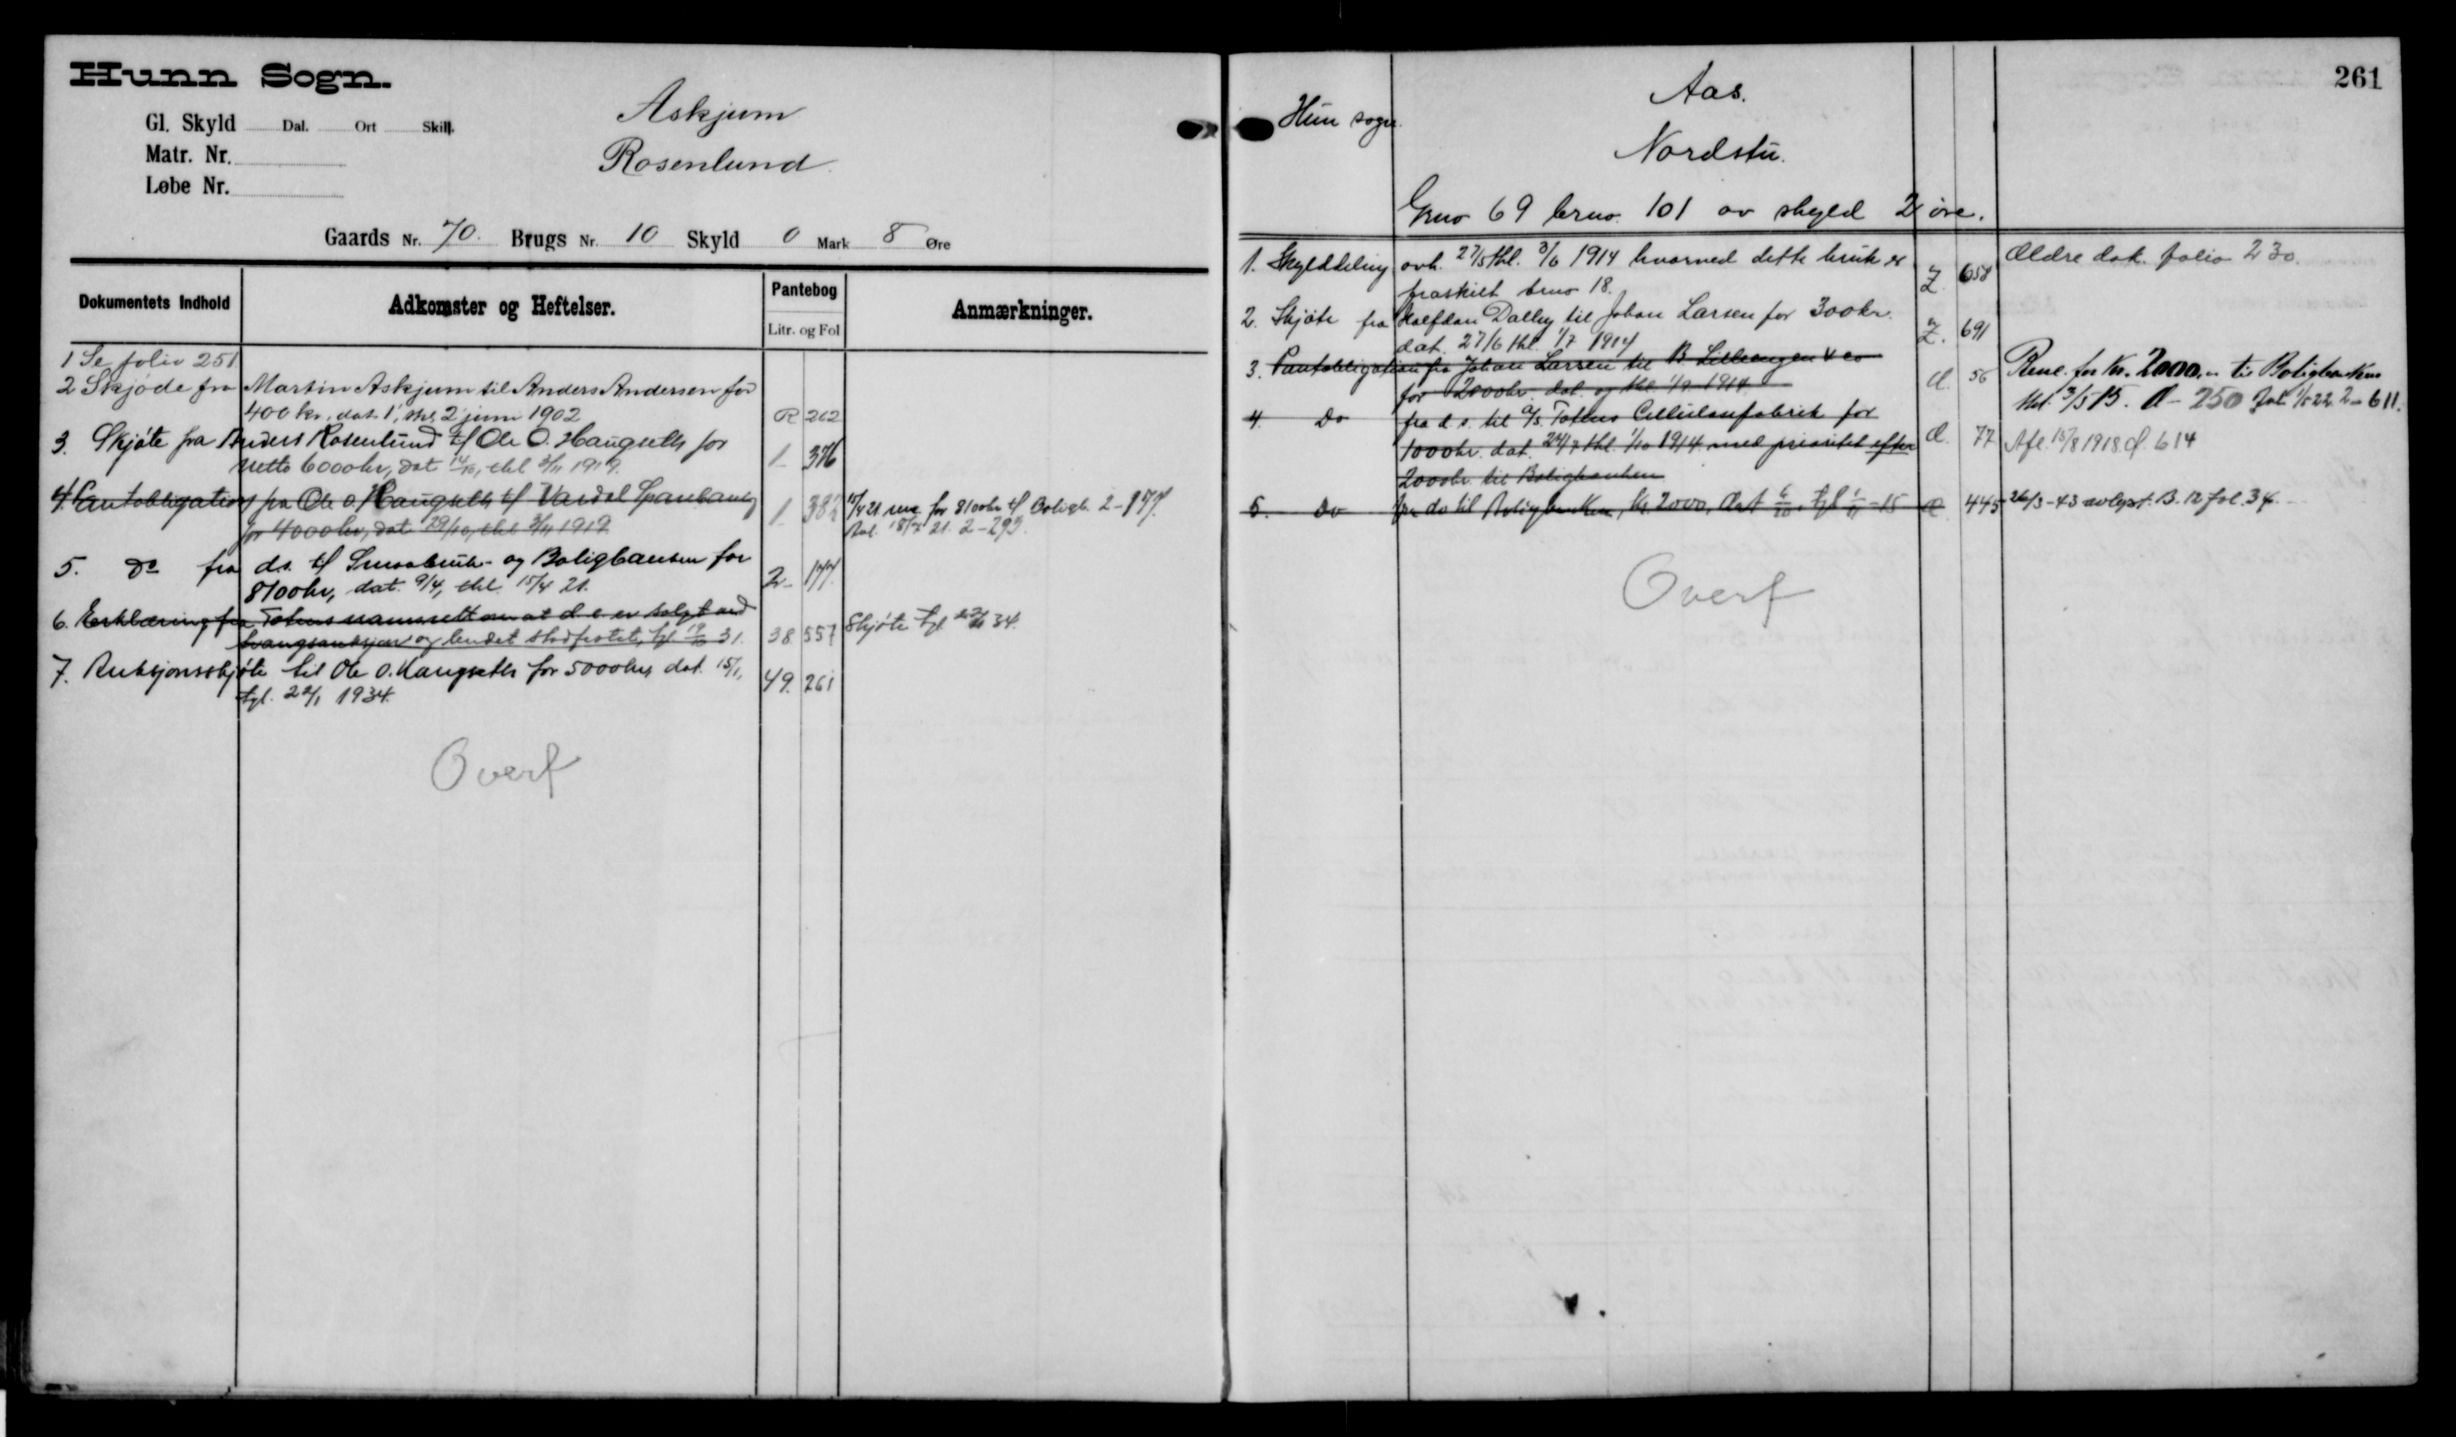 Hunn Sogn.
Gl. Skyld Dal. Ort Skill.
Matr. Nr.
Løbe Nr.
Askjum
Rosenlund
Gaards Nr. 70. Brugs Nr. 10 Skyld 0 Mark 8 Øre
Dokumentets Indhold
Adkomster og Heftelser.
Pantebog
Litr. og Fol
Anmærkninger.
1 Se folio 251
2 Skjøde fra Martin Askjum til Anders Andersen for
400 kr. dat. 1, thl. 2 juni 1902 R 262
3. Skjøte fra Anders Rosenlund tf Ole O. Haugseth for
netto 6000 kr, dat 14/10, thl 3/11 1919. 1 376
4. Pantobligation fra Ole O. Haugseth tf Vardal Sparebank
for 4000 kr, dat 29/10, thl 3/11 1919 1 382 15/4 21 rene for 8100 kr tf Boligb. 2-177.
18/7 21. 2-293.
5. Do fra ds. tf Smaabruk- og Boligbanken for
8100 kr, dat. 9/4, thl. 15/4 21. 2 177.
6. Erklæring fra Totens namsrett om at d. e. er solgt ved
tvangsauksjon og budet stadfestet, tgl. 19/10 31. 38 557 Skjøte tgl. 22/1 34.
7. Auksjonsskjøte til Ole O. Haugseth for 5000 kr, dat. 15/1,
tgl. 22/1 1934. 49. 261
Overf
261
Hun sogn.
Aas.
Nordstu.
Gnro 69 brno. 101 av skyld 2 øre.
1. Skylddeling avh. 27/5 thl. 3/6 1914 hvorved dette bruk er Z. 658 Ældre dok. folio 230.
fraskilt brno 18.
2. Skjøte fra Halfdan Dalby til Johan Larsen for 300 kr.
dat. 27/6 thl. 1/7 1914 Z. 691
3. Pantobligation fra Johan Larsen til B. Lilleengen & co
for 2000 kr. dat. og thl. 1/9 1914 d. 56 Rene. for Kr. 2000.- til Boligbanken
thl. 3/5 15. d- 250 1/5 22. 2-611.
4. Do fra d. s. til A/s. Totens Cellulosefabrik for
1000 kr. dat. 24/7 thl. 1/10 1914 med prioritet efter d. 77 Afl. 15/8 1918 f. 614
2000 kr. til Boligbanken
5. Do fra do til Boligbanken, kr. 2000, dat 6/10, tgl 1/11 -15 d. 445 26/3-43 avlyst. B. 12 fol. 34.
Overf